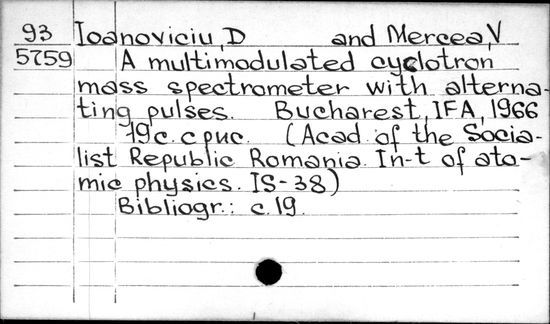 93 Ioanoviciu, D and Mercea, V
5759 A multimodulated cyclotron
mass spectrometer with alterna-
ting pulses. Bucharest, IFA, 1966
19c. с рис. (Acad of the Socia-
list Republic Romania. In-t of ato-
mic physics. IS-38)
Bibliogr.: c. 19.